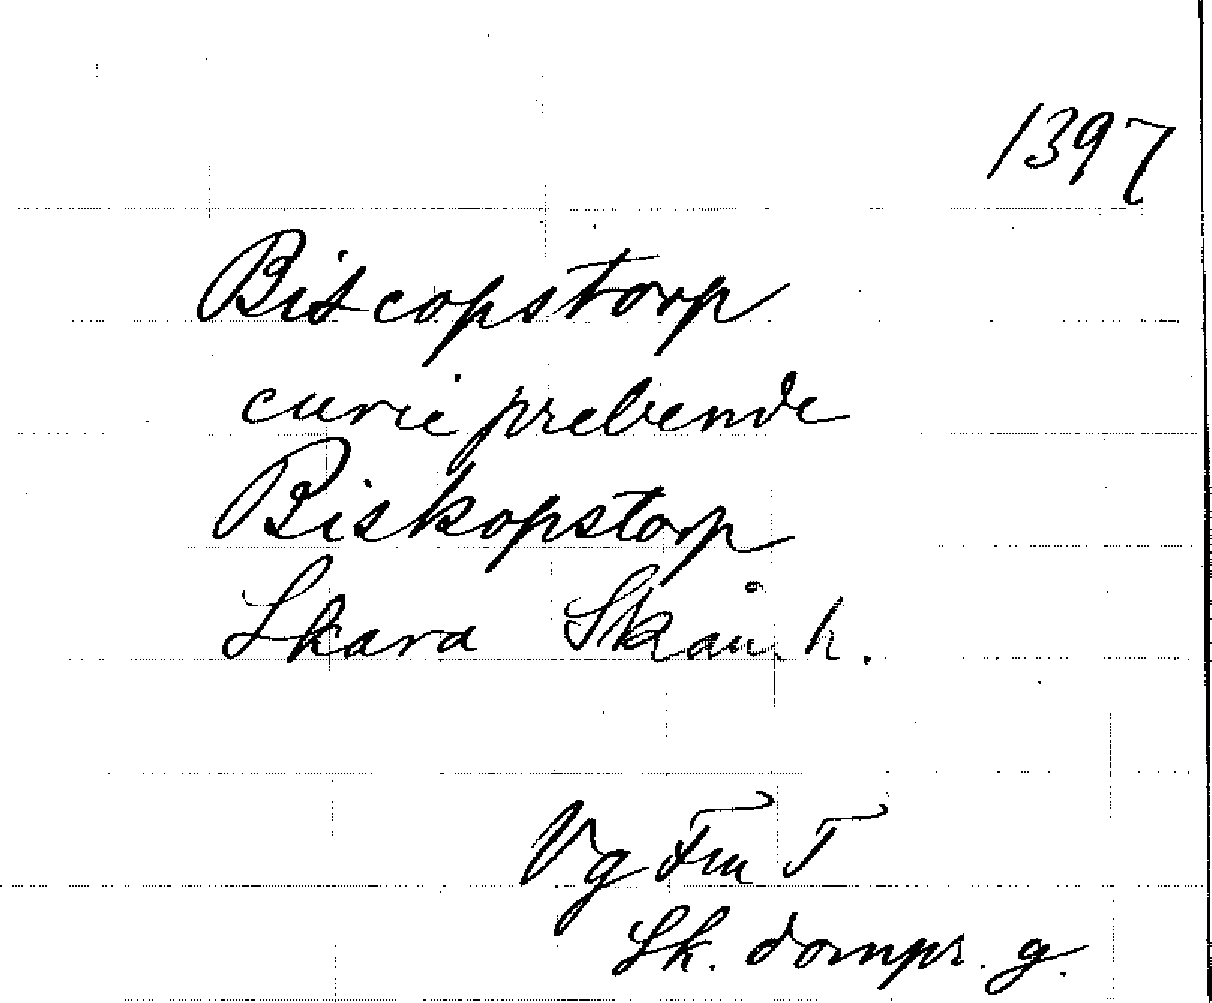 1397
Biscopstorp
curie prebende
Biskopstorp
Skara Skån. h.
Vg Fm T
Sk. dompr. g.